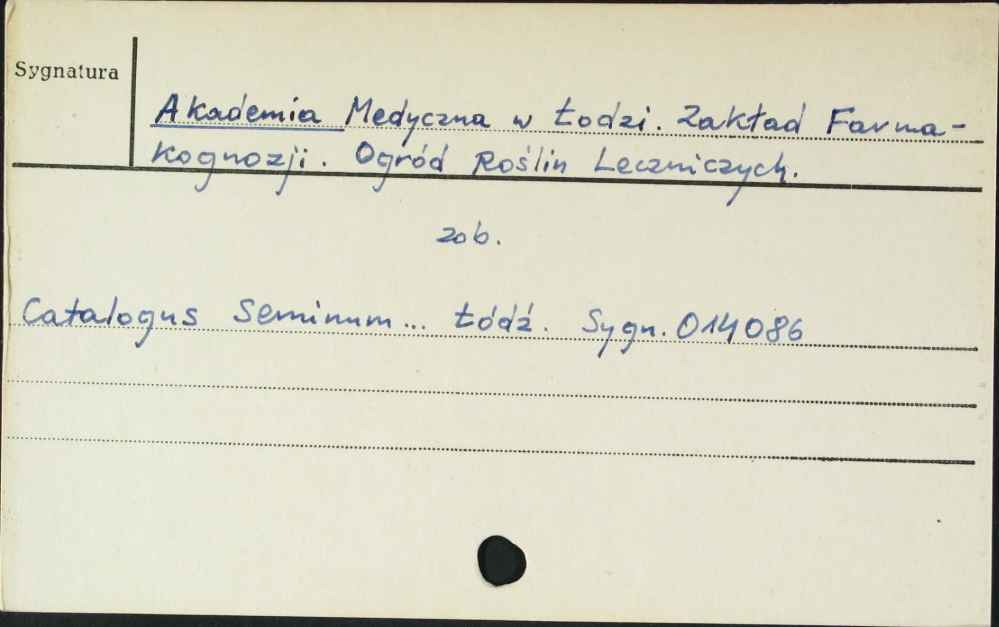 Sygnatura
Akademia Medyczna w Łodzi. Zakład Farma-
kognozji. Ogród Roślin Leczniczych.
zob.
Catalogus Seminum... Łódź. Sygn. 014086